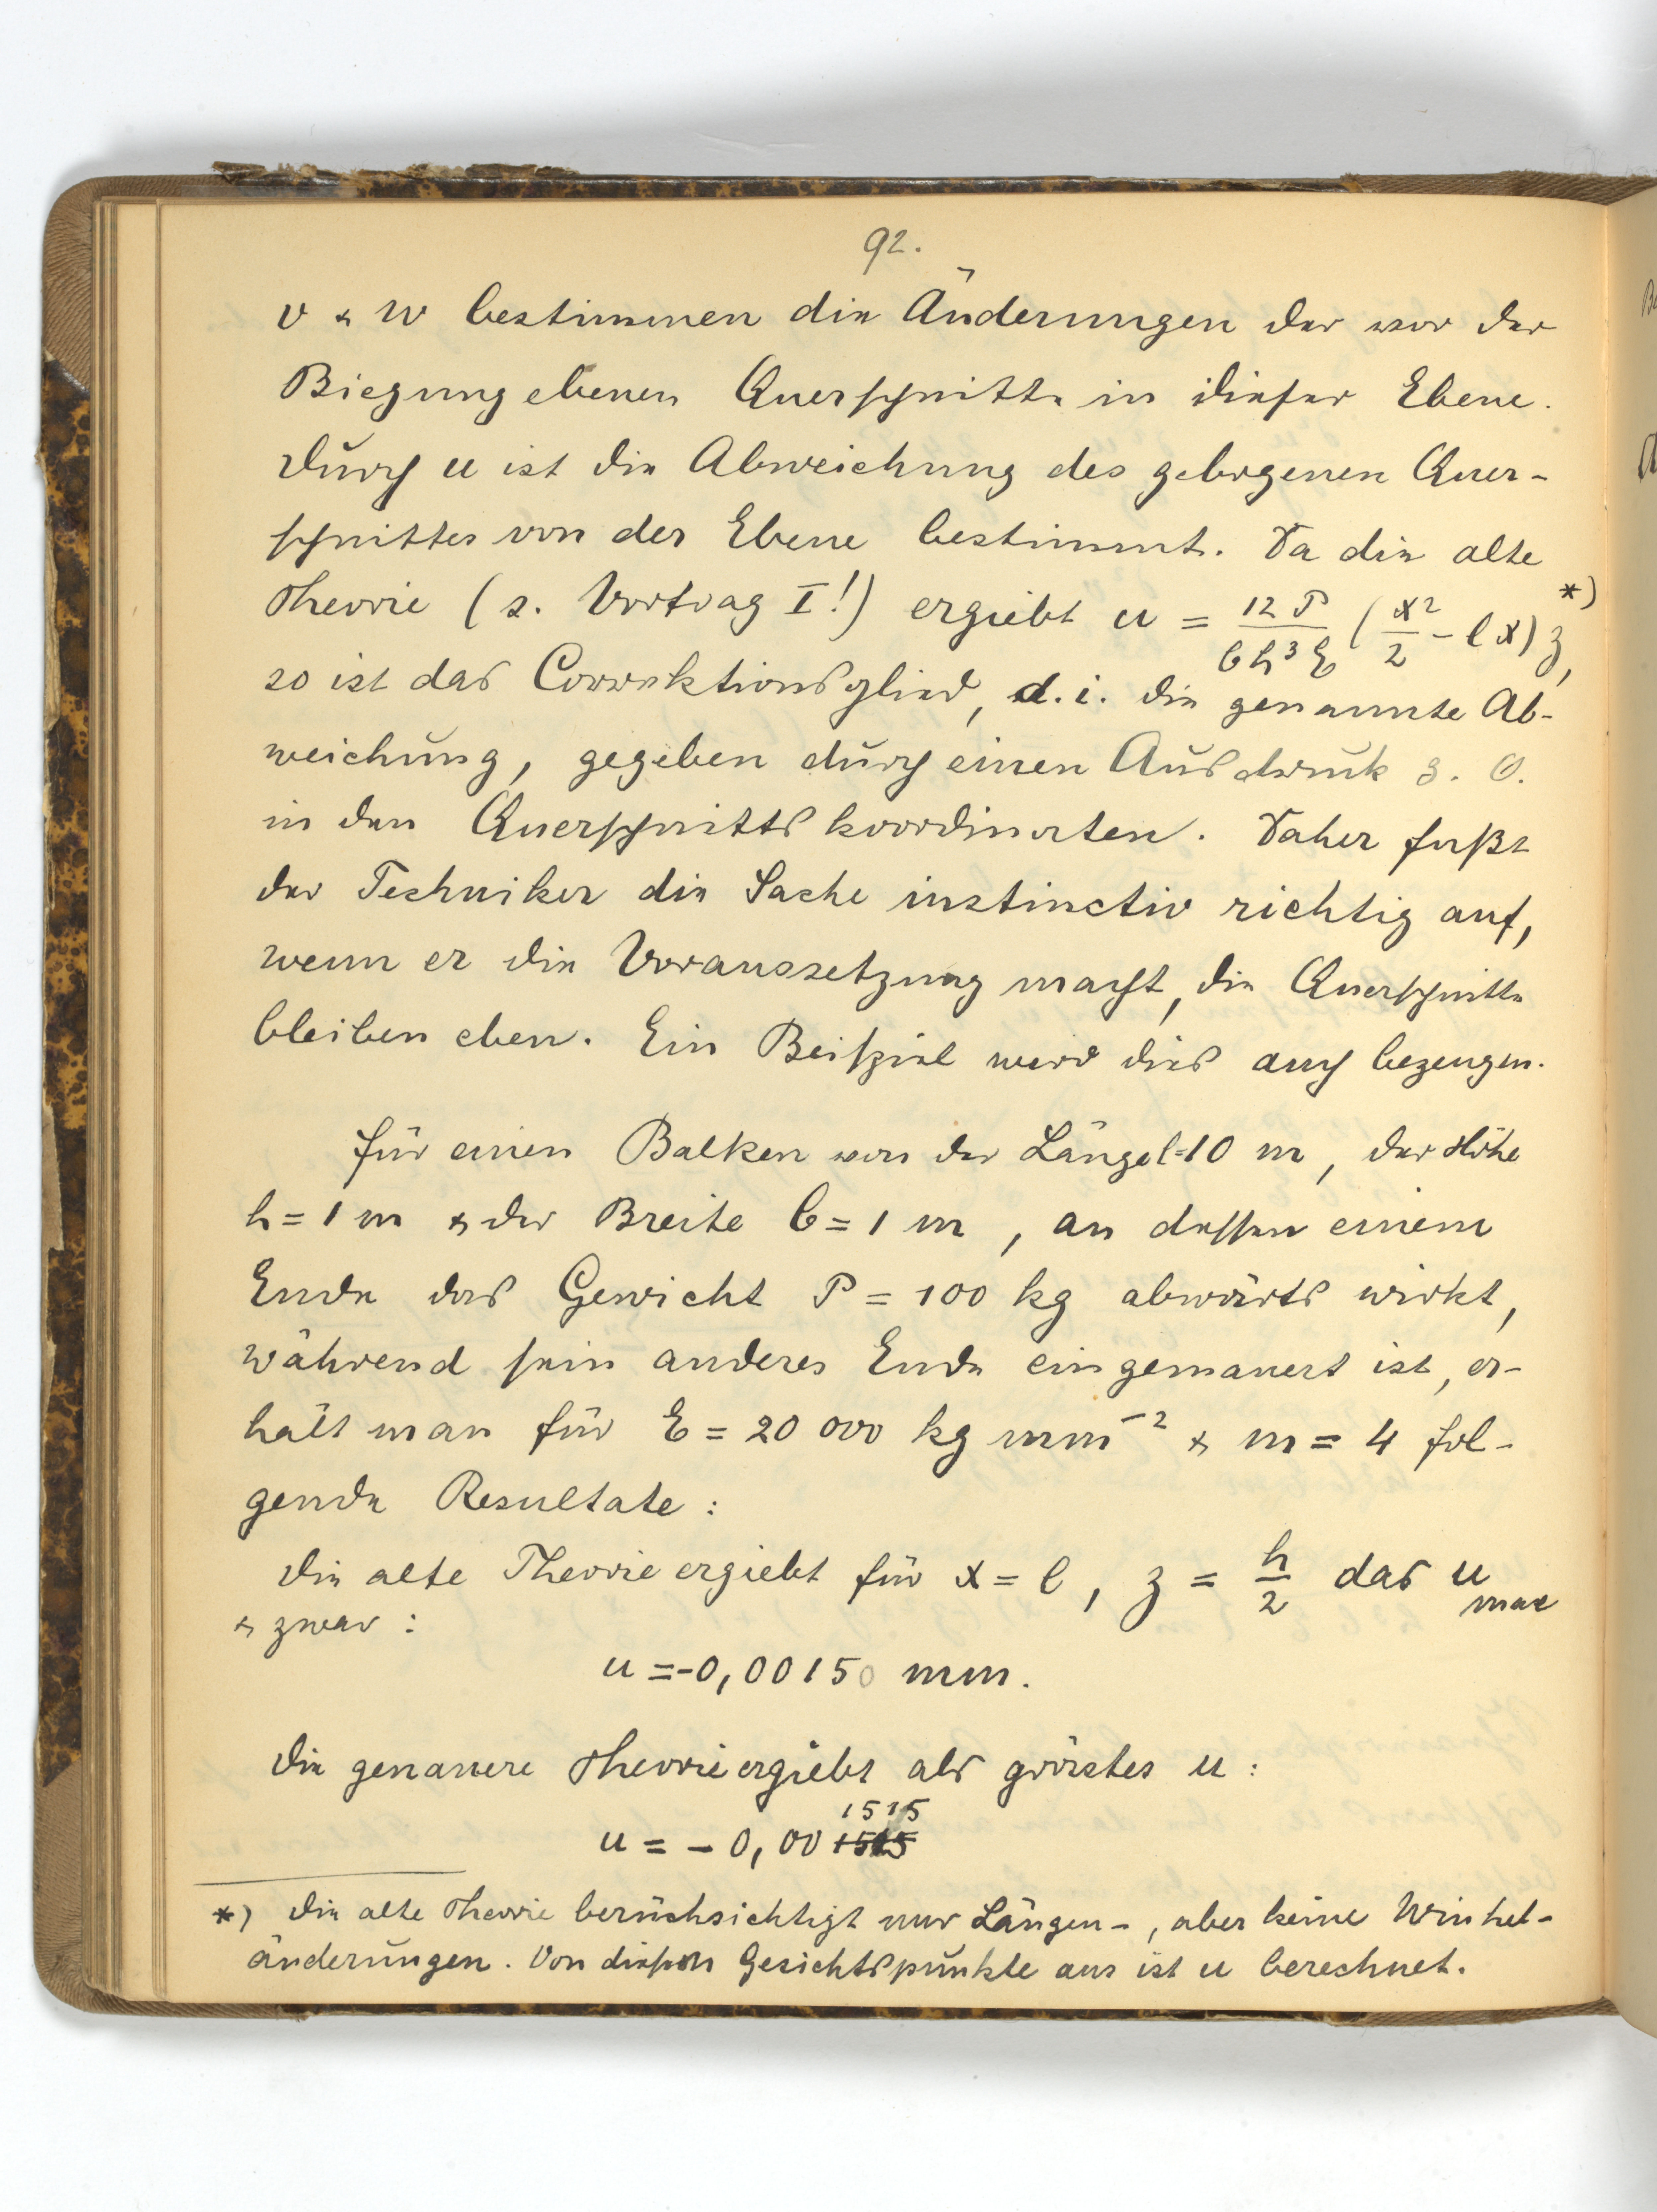 92.
v & w bestimmen die Änderungen der vor der
Biegung ebenen Querschnitte in dieser Ebene.
Durch u ist die Abweichung des gebogenen Quer-
schnittes von der Ebene bestimmt. Da die alte
Theorie (s. Vortrag I!) ergiebt u = 12 P / b h³ E (x²/2 - l x) z, *)
so ist das Correktionsglied, d. i. die genannte Ab-
weichung, gegeben durch einen Ausdruck 3. O.
in den Querschnittskoordinaten. Daher faßt
der Techniker die Sache instinctiv richtig auf,
wenn er die Voraussetzung macht, die Querschnitte
bleiben eben. Ein Beispiel wird dies auch bezeugen.
Für einen Balken von der Länge l=10 m, der Höhe
h = 1 m & der Breite b = 1 m, an dessen einem
Ende das Gewicht P = 100 kg abwärts wirkt,
während sein anderes Ende eingemauert ist, er-
hält man für E = 20 000 kg mm⁻² & m = 4 fol-
gende Resultate:
Die alte Theorie ergiebt für x = l, z = h/2 das u max
& zwar:
u = -0,00150 mm.
Die genauere Theorie ergiebt als grösstes u:
1515
u = - 0,00 1515
*) Die alte Theorie berücksichtigt nur Längen-, aber keine Winkel-
änderungen. Von diesem Gesichtspunkte aus ist u berechnet.